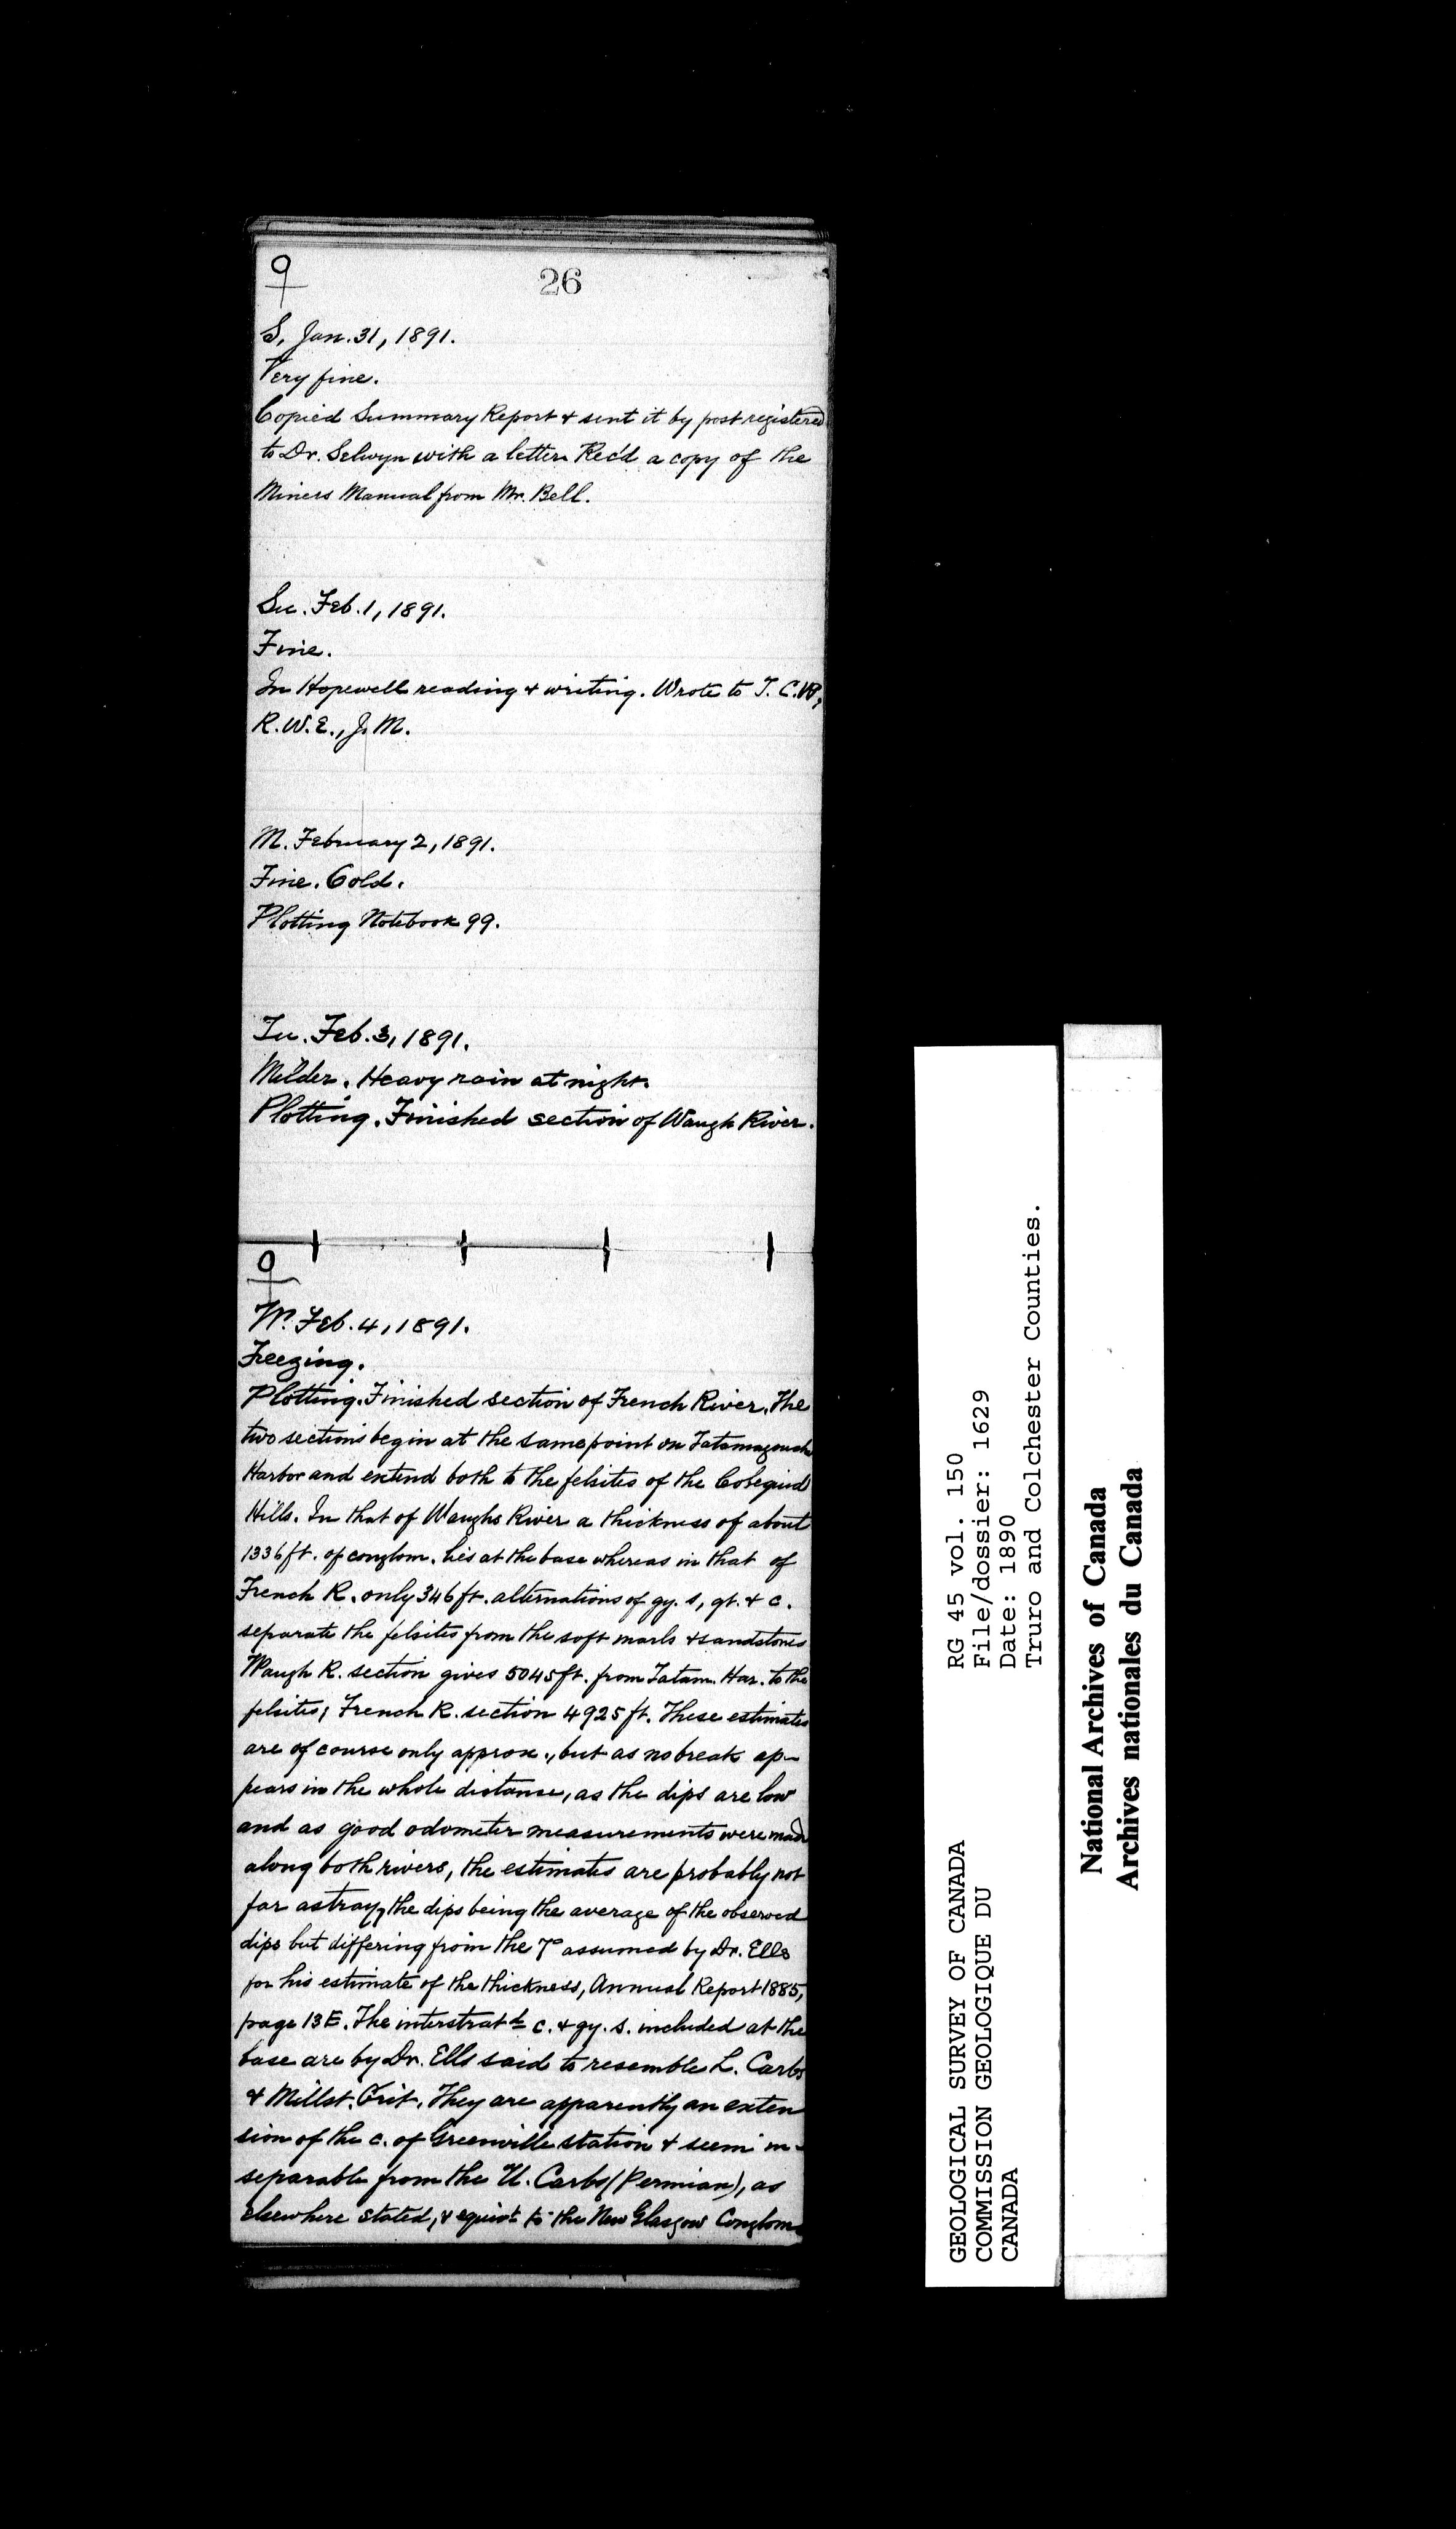 26
S. Jan. 31, 1891.
Very fine.
Copied Summary Report & sent it by post registered
to Dr. Selwyn with a letter. Rec'd a copy of the
Miners Manual from Mr. Bell.
Su. Feb. 1, 1891.
Fine.
In Hopewell reading & writing. Wrote to T. C. W.,
R.W.E., J. M.
M. February 2, 1891.
Fine. Cold.
Plotting Notebook 99.
Tu. Feb. 3, 1891.
Milder. Heavy rain at night.
Plotting. Finished section of Waugh River.
W. Feb. 4, 1891.
Freezing.
Plotting. Finished section of French River. The
two sections begin at the same point on Tatamagouche
Harbor and extend both to the felsites of the Cobequid
Hills. In that of Waughs River a thickness of about
1336 ft. of conglom. lies at the base whereas in that of
French R. only 346 ft. alternations of gy. s, gt. & c.
separate the felsites from the soft marls & sandstones
Waugh R. section gives 5045 ft. from Tatam. Har. to the
felsites; French R. section 4925 ft. These estimates
are of course only approx., but as no break ap-
pears in the whole distance, as the dips are low
and as good odometer measurements were made
along both rivers, the estimates are probably not
far astray, the dips being the average of the observed
dips but differing from the 7° assumed by Dr. Ells
for his estimate of the thickness, Annual Report 1885,
page 13E. The interstratd c. & gy. s. included at the
base are by Dr. Ells said to resemble L. Carbs
& Millst. Grit. They are apparently an exten
sion of the c. of Greenville station & seem in-
separable from the U. Carbs (Permian), as
elsewhere stated, & equivt to the New Glasgow Conglom.
GEOLOGICAL SURVEY OF CANADA
COMMISSION GEOLOGIQUE DU
CANADA
RG 45 vol. 150
File/dossier: 1629
Date: 1890
Truro and Colchester Counties.
National Archives of Canada
Archives nationales du Canada